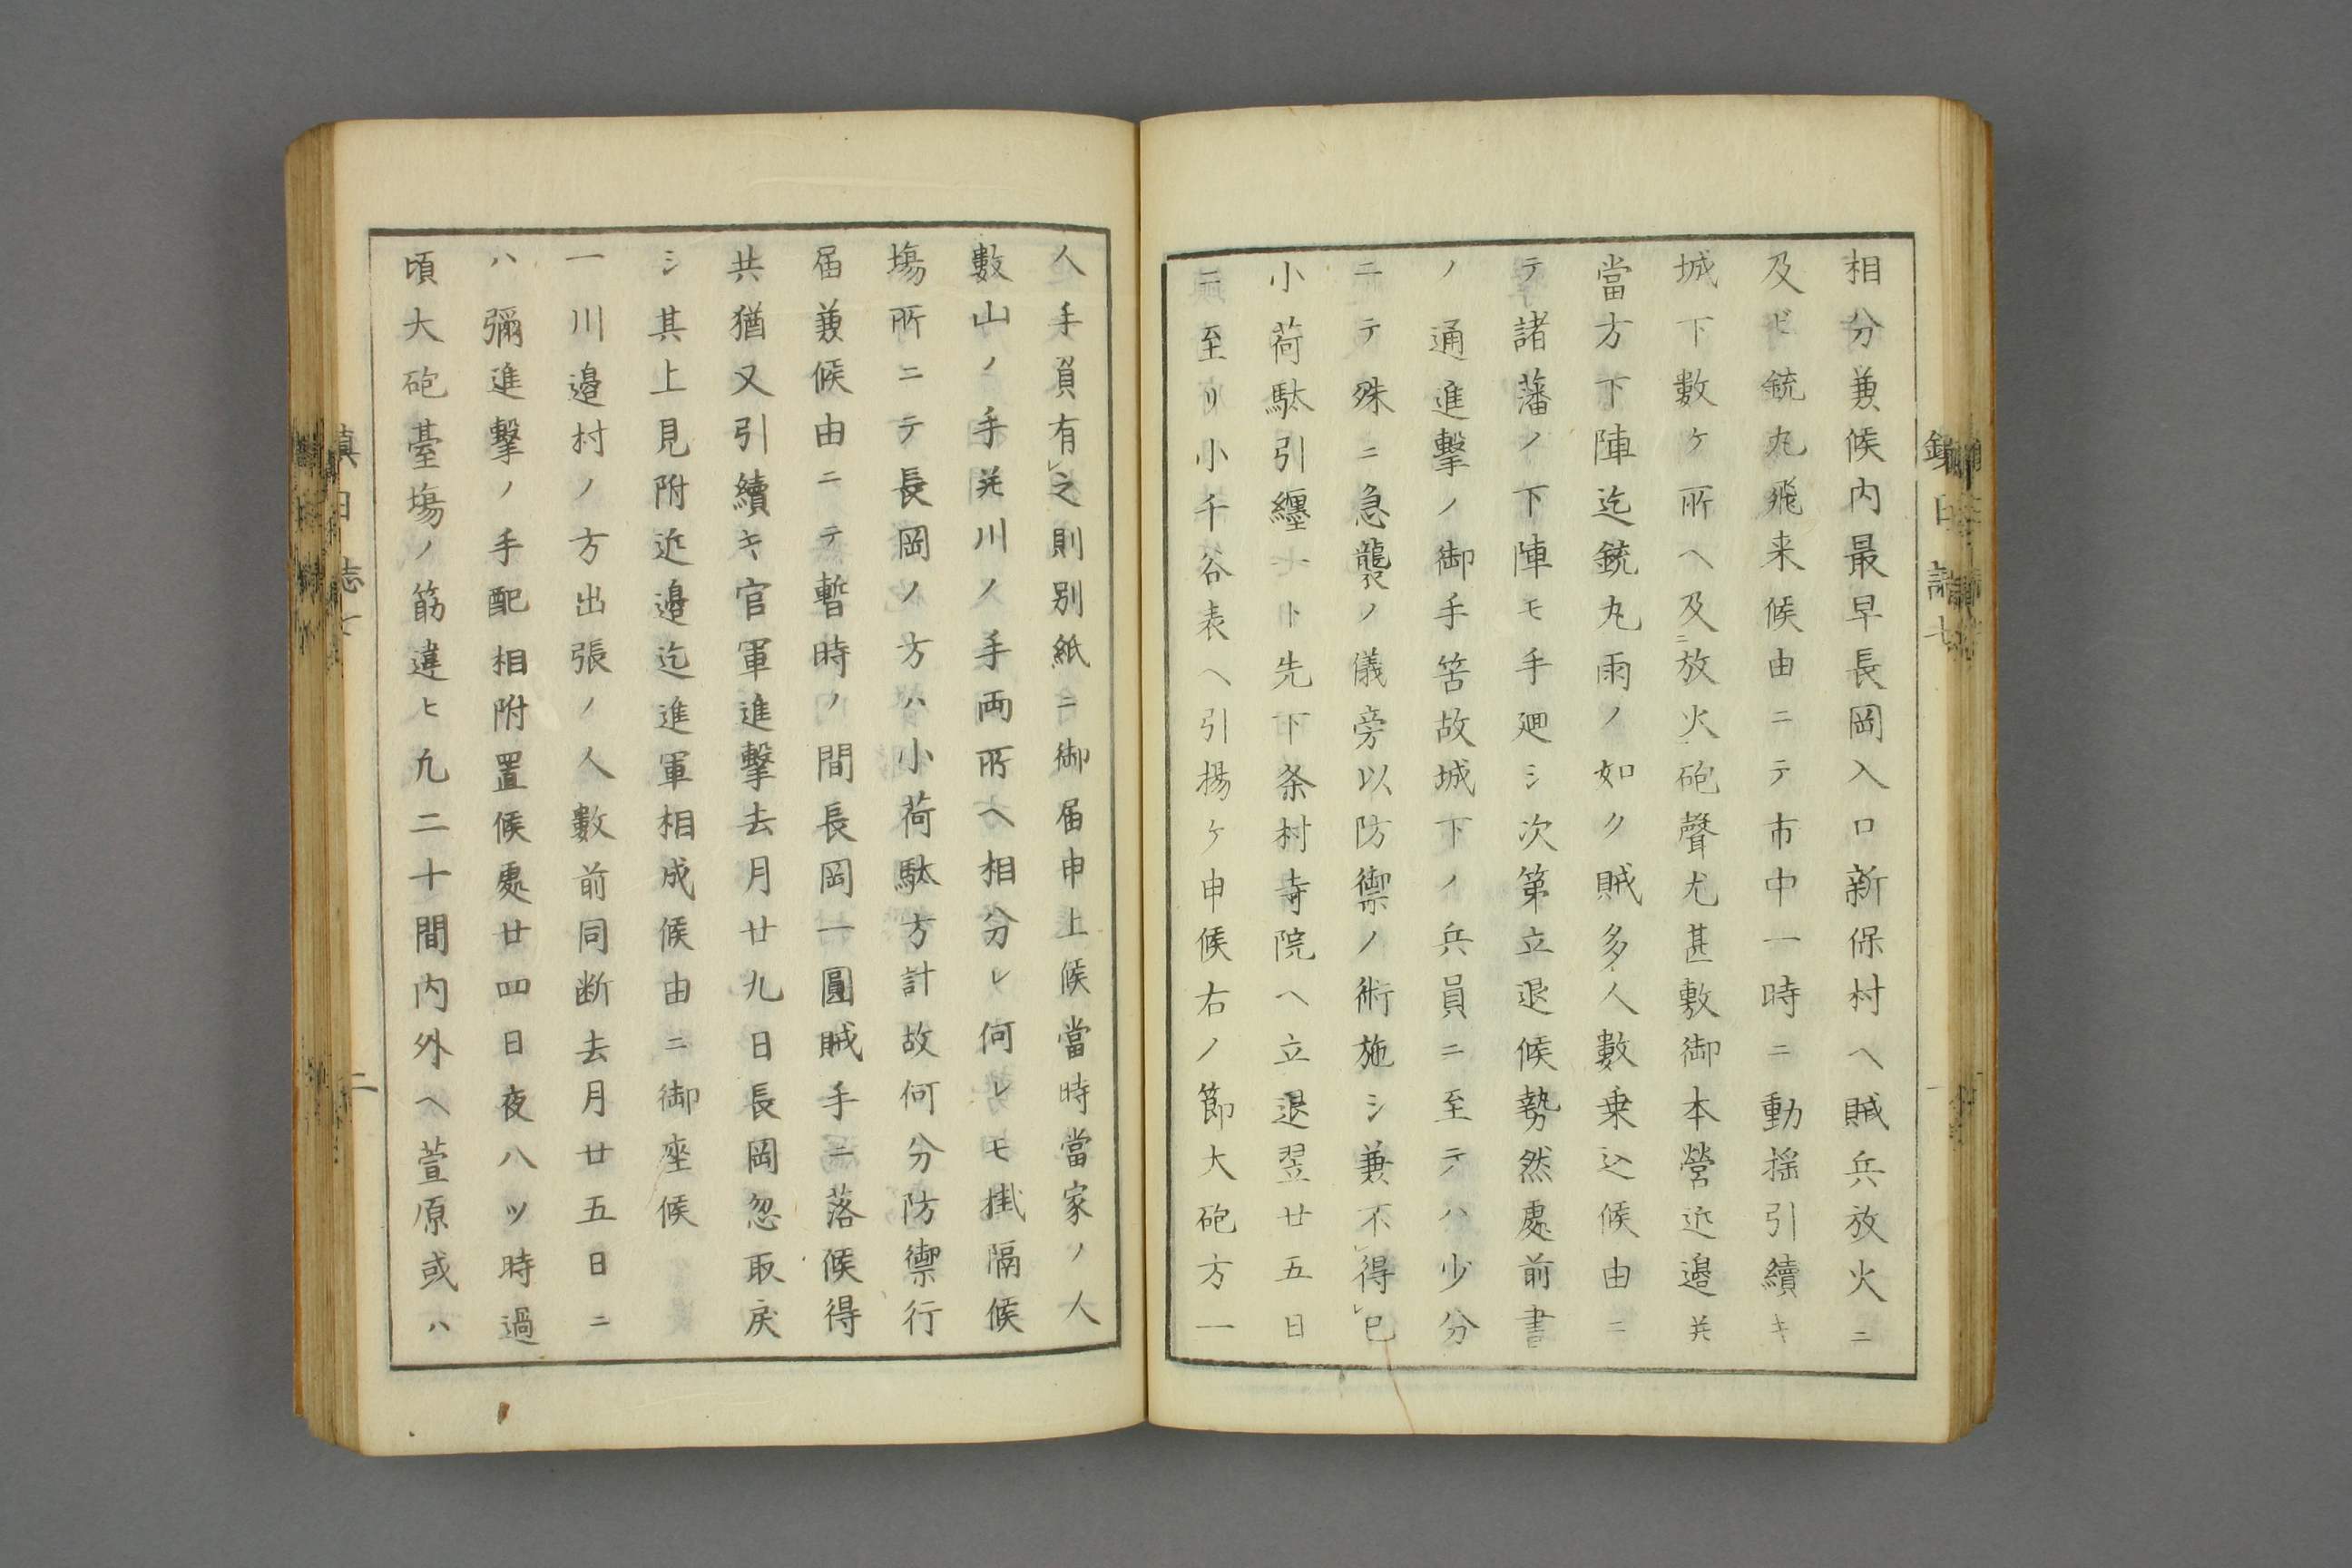 相分兼候内最早長岡入口新保村ヘ賊兵放火ニ
及ビ銃丸飛来候由ニテ市中一時ニ動揺引續キ
城下數ケ所ヘ及ニ放火砲聲尤甚敷御本營近邉并
當方下陣迄銃丸雨ノ如ク賊多人數乗込候由ニ
テ諸藩ノ下陣モ手廻シ次第立退候勢然處前書
ノ通進撃ノ御手筈故城下ノ兵員ニ至テハ少分
ニテ殊ニ急襲ノ儀旁以防禦ノ術施シ兼不レ得レ已
小荷駄引纒一ト先下条村寺院ヘ立退翌廿五日
ニ至リ小千谷表ヘ引揚ケ申候右ノ節大砲方一
人手負有レ之則別紙ニ御届申上候當時當家ノ人
數山ノ手并川ノ手両所ヘ相分レ何レモ掛隔候
塲所ニテ長岡ノ方ハ小荷駄方計故何分防禦行
届兼候由ニテ暫時ノ間長岡一圓賊手ニ落候得
共猶又引續キ官軍進撃去月廿九日長岡忽取戻
シ其上見附近邉迄進軍相成候由ニ御座候
一川邉村ノ方出張ノ人數前同断去月廿五日ニ
ハ彌進撃ノ手配相附置候處廿四日夜八ツ時過
頃大砲臺塲ノ筋違ヒ九二十間内外ヘ萱原或ハ
鎮日志七
二